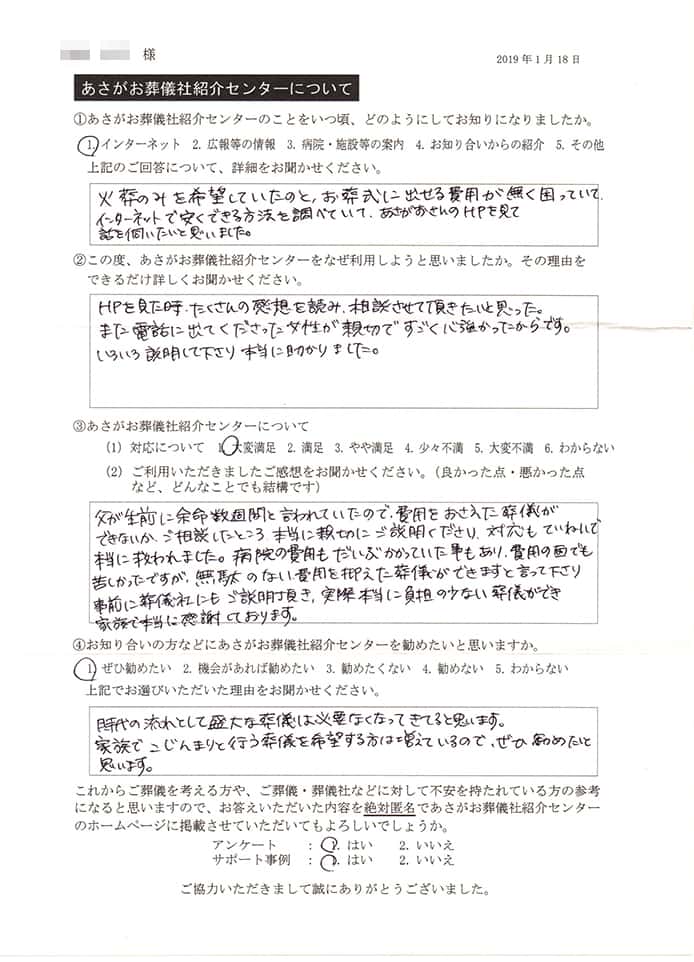 様
2019年1月18日
あさがお葬儀社紹介センターについて
①あさがお葬儀社紹介センターのことをいつ頃、どのようにしてお知りになりましたか。
1. インターネット 2. 広報等の情報 3. 病院・施設等の案内 4. お知り合いからの紹介 5. その他
上記のご回答について、詳細をお聞かせください。
火葬のみを希望していたのと、お葬式に出せる費用が無く困っていて、
インターネットで安くできる方法を調べていて、あさがおさんのHPを見て
話を伺いたいと思いました。
②この度、あさがお葬儀社紹介センターをなぜ利用しようと思いましたか。その理由を
できるだけ詳しくお聞かせください。
HPを見た時、たくさんの感想を読み、相談させて頂きたいと思った。
また電話に出てくださった女性が親切ですごく心強かったからです。
いろいろ説明して下さり本当に助かりました。
③あさがお葬儀社紹介センターについて
(1) 対応について 1. 大変満足 2. 満足 3. やや満足 4. 少々不満 5. 大変不満 6. わからない
(2) ご利用いただきましたご感想をお聞かせください。(良かった点・悪かった点
など、どんなことでも結構です)
父が生前に余命数週間と言われていたので、費用をおさえた葬儀が
できないか、ご相談したところ、本当に親切にご説明くださり、対応もていねいで
本当に救われました。病院の費用もだいぶかかっていた事もあり、費用の面でも
苦しかったですが、無駄のない費用を抑えた葬儀ができますと言って下さり
事前に葬儀社にもご説明頂き、実際本当に負担の少ない葬儀ができ
家族で本当に感謝しております。
④お知り合いの方などにあさがお葬儀社紹介センターを勧めたいと思いますか。
1. ぜひ勧めたい 2. 機会があれば勧めたい 3. 勧めたくない 4. 勧めない 5. わからない
上記でお選びいただいた理由をお聞かせください。
時代の流れとして盛大な葬儀は必要なくなってきてると思います。
家族でこじんまりと行う葬儀を希望する方は増えているので、ぜひ勧めたいと
思います。
これからご葬儀を考える方や、ご葬儀・葬儀社などに対して不安を持たれている方の参考
になると思いますので、お答えいただいた内容を絶対匿名であさがお葬儀社紹介センター
のホームページに掲載させていただいてもよろしいでしょうか。
アンケート : 1. はい 2. いいえ
サポート事例 : 1. はい 2. いいえ
ご協力いただきまして誠にありがとうございました。